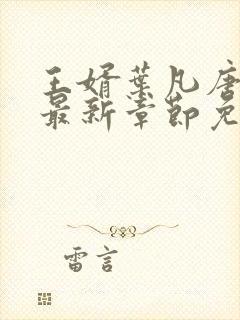 王婿葉凡唐
最新章節免
雷言